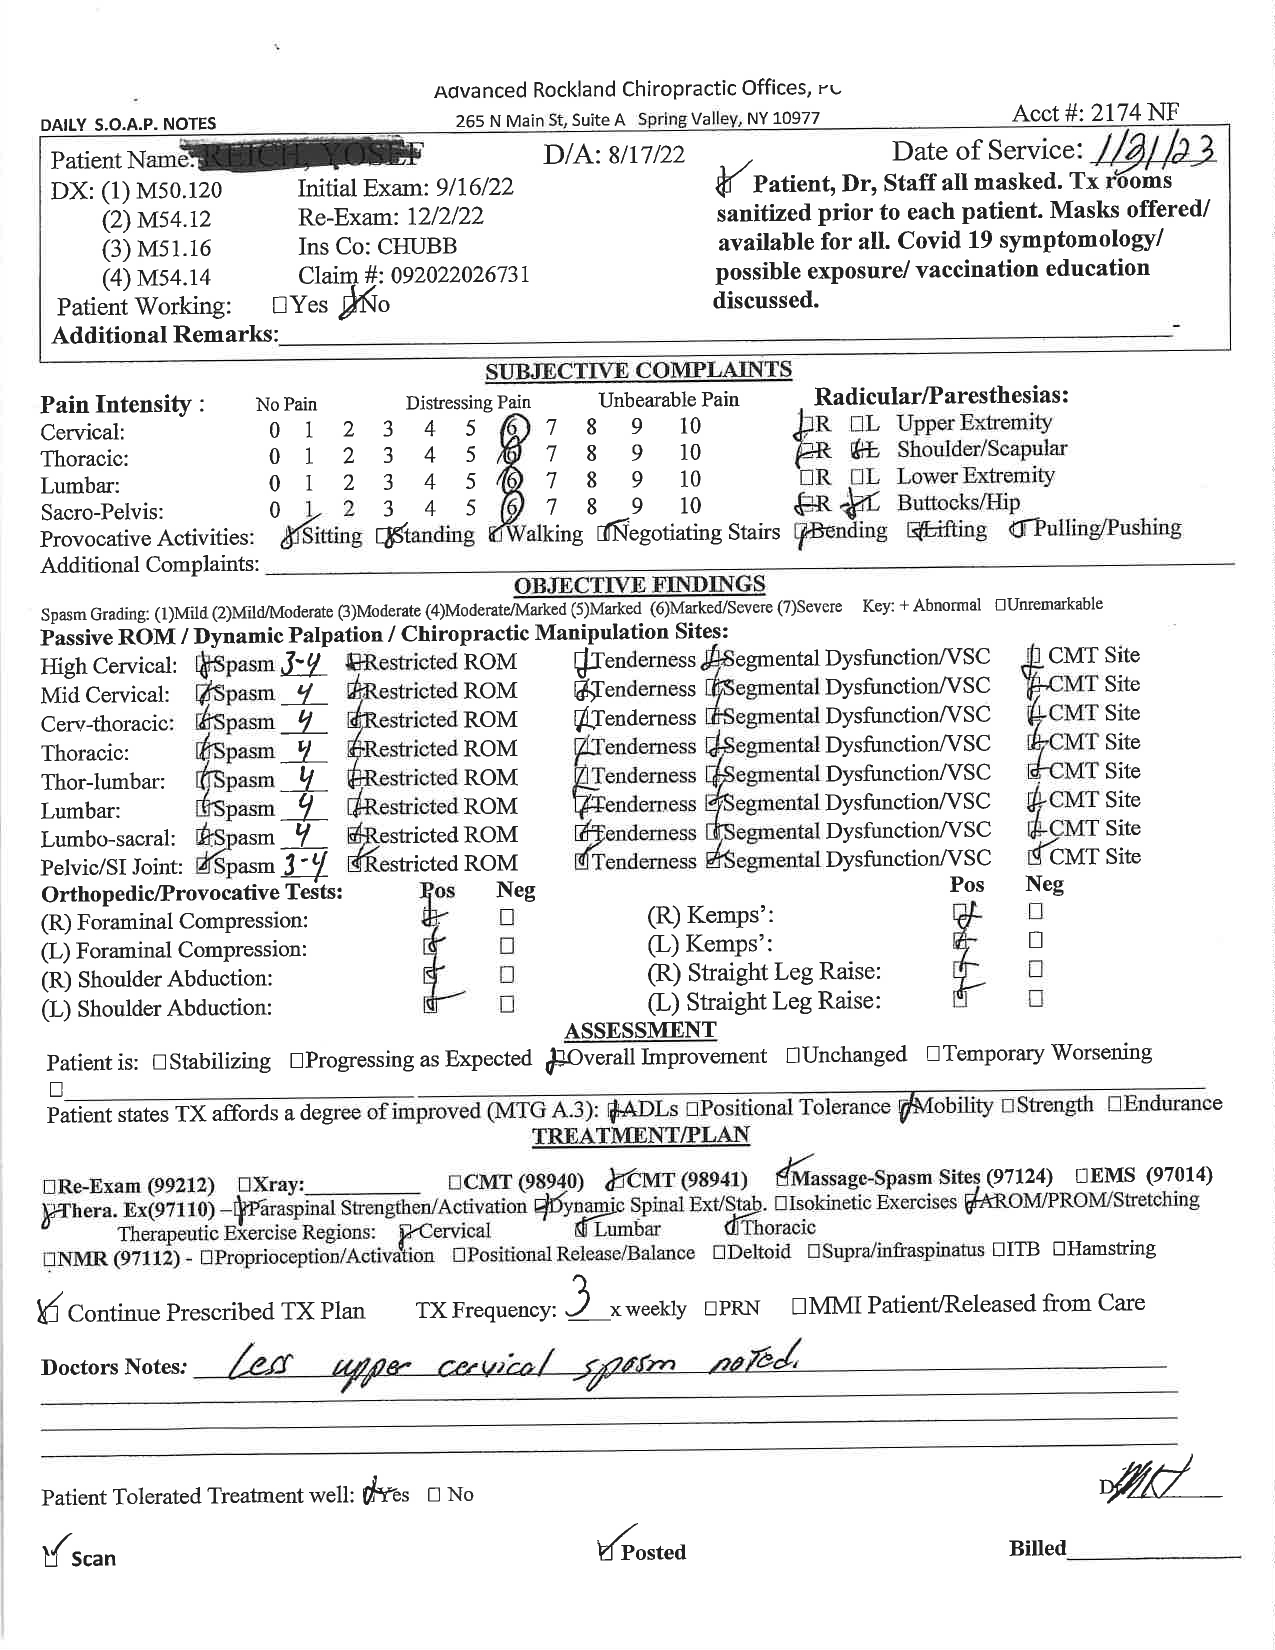 Advanced Rockland Chiropractic Offices, PC
DAILY S.O.A.P. NOTES 265 N Main St, Suite A Spring Valley, NY 10977 Acct #: 2174 NF
Patient Name: D/A: 8/17/22 Date of Service: 1/31/23
DX: (1) M50.120 Initial Exam: 9/16/22 ☑ Patient, Dr, Staff all masked. Tx rooms
(2) M54.12 Re-Exam: 12/2/22 sanitized prior to each patient. Masks offered/
(3) M51.16 Ins Co: CHUBB available for all. Covid 19 symptomology/
(4) M54.14 Claim #: 092022026731 possible exposure/ vaccination education
Patient Working: ☐Yes ☑No discussed.
Additional Remarks:
SUBJECTIVE COMPLAINTS
Pain Intensity : No Pain Distressing Pain Unbearable Pain Radicular/Paresthesias:
Cervical: 0 1 2 3 4 5 6 7 8 9 10 ☑R ☐L Upper Extremity
Thoracic: 0 1 2 3 4 5 6 7 8 9 10 ☑R ☑L Shoulder/Scapular
Lumbar: 0 1 2 3 4 5 6 7 8 9 10 ☐R ☐L Lower Extremity
Sacro-Pelvis: 0 1 2 3 4 5 6 7 8 9 10 ☑R ☑L Buttocks/Hip
Provocative Activities: ☑Sitting ☑Standing ☑Walking ☑Negotiating Stairs ☑Bending ☑Lifting ☑Pulling/Pushing
Additional Complaints:
OBJECTIVE FINDINGS
Spasm Grading: (1)Mild (2)Mild/Moderate (3)Moderate (4)Moderate/Marked (5)Marked (6)Marked/Severe (7)Severe Key: + Abnormal ☐Unremarkable
Passive ROM / Dynamic Palpation / Chiropractic Manipulation Sites:
High Cervical: ☑Spasm 3-4 ☑Restricted ROM ☑Tenderness ☑Segmental Dysfunction/VSC ☑ CMT Site
Mid Cervical: ☑Spasm 4 ☑Restricted ROM ☑Tenderness ☑Segmental Dysfunction/VSC ☑CMT Site
Cerv-thoracic: ☑Spasm 4 ☑Restricted ROM ☑Tenderness ☑Segmental Dysfunction/VSC ☑CMT Site
Thoracic: ☑Spasm 4 ☑Restricted ROM ☑Tenderness ☑Segmental Dysfunction/VSC ☑CMT Site
Thor-lumbar: ☑Spasm 4 ☑Restricted ROM ☑Tenderness ☑Segmental Dysfunction/VSC ☑CMT Site
Lumbar: ☑Spasm 4 ☑Restricted ROM ☑Tenderness ☑Segmental Dysfunction/VSC ☑CMT Site
Lumbo-sacral: ☑Spasm 4 ☑Restricted ROM ☑Tenderness ☑Segmental Dysfunction/VSC ☑CMT Site
Pelvic/SI Joint: ☑Spasm 3-4 ☑Restricted ROM ☑Tenderness ☑Segmental Dysfunction/VSC ☑CMT Site
Orthopedic/Provocative Tests: Pos Neg Pos Neg
(R) Foraminal Compression: ☑ ☐ (R) Kemps': ☑ ☐
(L) Foraminal Compression: ☑ ☐ (L) Kemps': ☑ ☐
(R) Shoulder Abduction: ☑ ☐ (R) Straight Leg Raise: ☑ ☐
(L) Shoulder Abduction: ☑ ☐ (L) Straight Leg Raise: ☑ ☐
ASSESSMENT
Patient is: ☐Stabilizing ☐Progressing as Expected ☑Overall Improvement ☐Unchanged ☐Temporary Worsening
☐
Patient states TX affords a degree of improved (MTG A.3): ☑ADLs ☐Positional Tolerance ☑Mobility ☐Strength ☐Endurance
TREATMENT/PLAN
☐Re-Exam (99212) ☐Xray: ☐CMT (98940) ☑CMT (98941) ☑Massage-Spasm Sites (97124) ☐EMS (97014)
☑Thera. Ex(97110) –☑Paraspinal Strengthen/Activation ☑Dynamic Spinal Ext/Stab. ☐Isokinetic Exercises ☑AROM/PROM/Stretching
Therapeutic Exercise Regions: ☑Cervical ☑Lumbar ☑Thoracic
☐NMR (97112) - ☐Proprioception/Activation ☐Positional Release/Balance ☐Deltoid ☐Supra/infraspinatus ☐ITB ☐Hamstring
☑ Continue Prescribed TX Plan TX Frequency: 3 x weekly ☐PRN ☐MMI Patient/Released from Care
Doctors Notes: Less upper cervical spasm noted.
Patient Tolerated Treatment well: ☑Yes ☐ No
☑ Scan ☑ Posted Billed